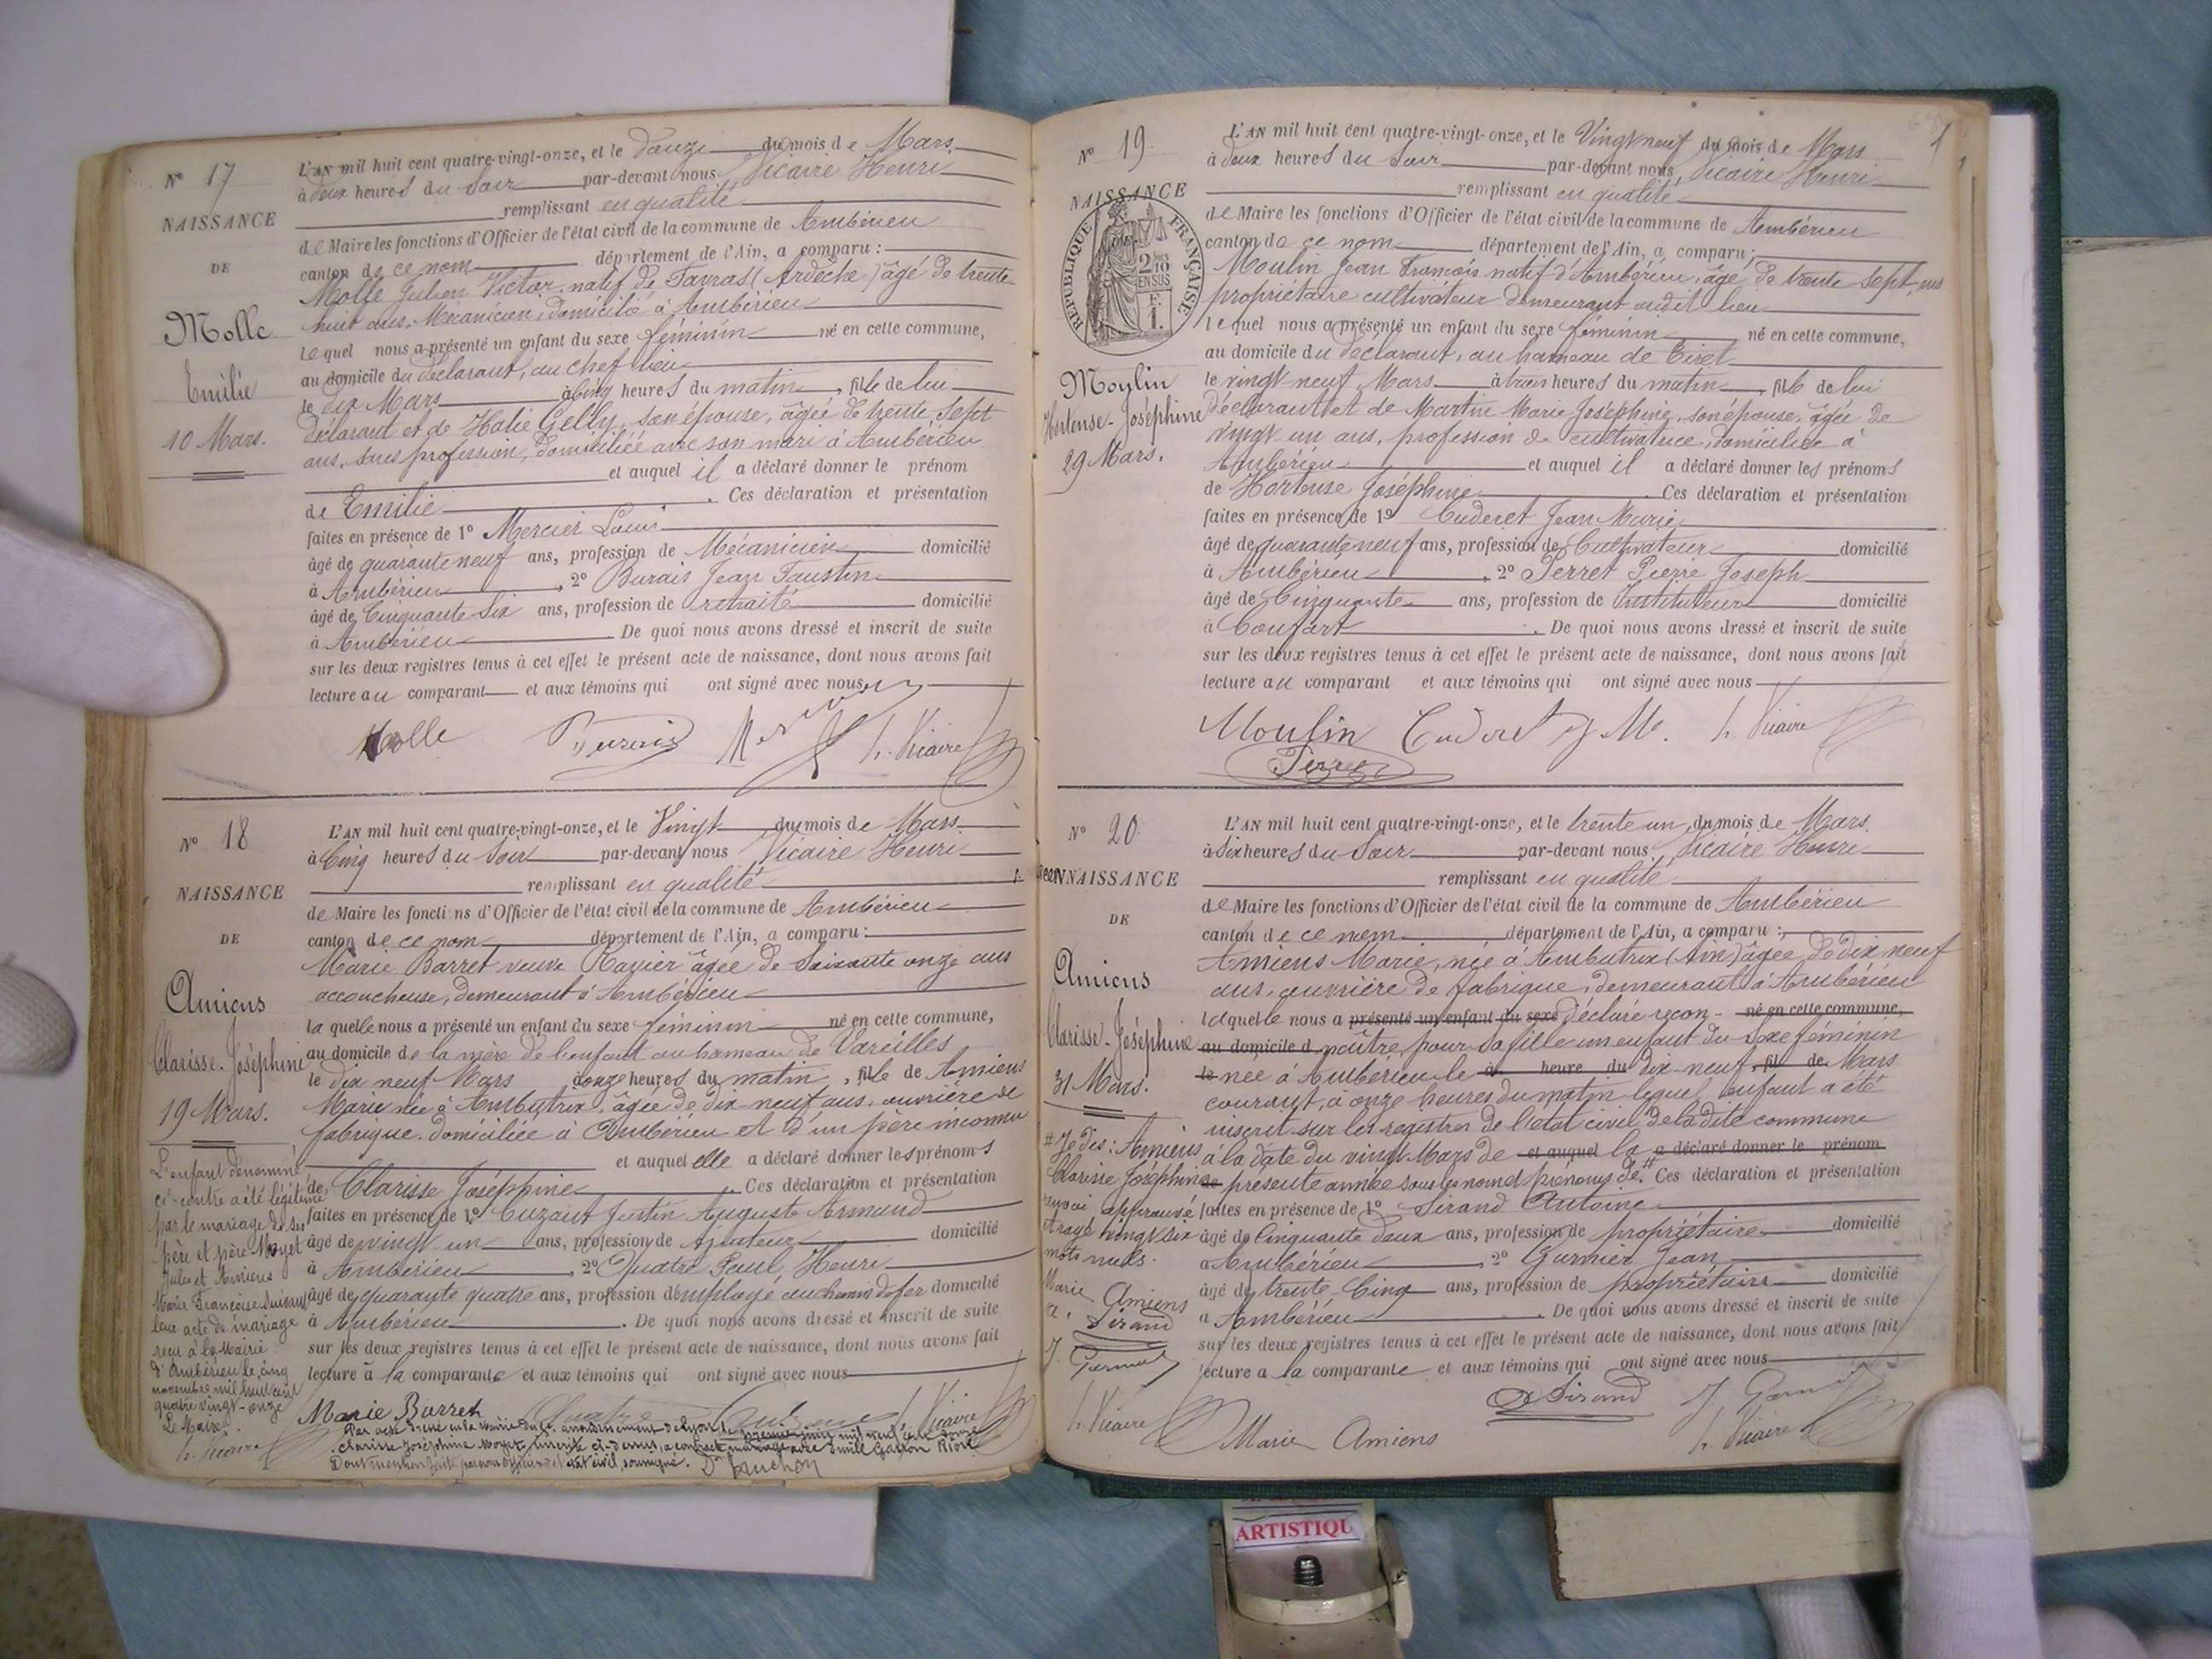 N° 17
NAISSANCE
DE
Molle
Emilie
10 Mars.
L'AN mil huit cent quatre-vingt-onze, et le douze du mois de Mars
à deux heures du Soir par-devant nous Vicaire Henri
remplissant en qualité
de Maire les fonctions d'Officier de l'état civil de la commune de Ambérieu
canton de ce nom département de l'Ain, a comparu :
Molle Julien Victor, natif de (Ardèche) âgé de trente
huit ans, Mécanicien, domicilié à Ambérieu
lequel nous a présenté un enfant du sexe féminin né en cette commune,
au domicile du déclarant, au chef lieu
le dix Mars à cinq heures du matin, fille de lui
déclarant et de Gelly, son épouse, âgée de trente sept
ans, sans profession, domiciliée avec son mari à Ambérieu
et auquel il a déclaré donner le prénom
de Emilie. Ces déclaration et présentation
faites en présence de 1° Mercier Louis
âgé de quarante neuf ans, profession de Mécanicien domicilié
à Ambérieu, 2° Burais Jean Faustin
âgé de Cinquante Six ans, profession de retraité domicilié
à Ambérieu. De quoi nous avons dressé et inscrit de suite
sur les deux registres tenus à cet effet le présent acte de naissance, dont nous avons fait
lecture au comparant et aux témoins qui ont signé avec nous
Molle h. Vicaire
N° 18
NAISSANCE
DE
Amiens
Clarisse-Joséphine
19 Mars.
L'enfant dénommé
ci-contre a été légitimé
par le mariage de ses
père et père Moyet
Jules et Amiens
Marie Françoise suivant
leur acte de mariage
reçu à la Mairie
d'Ambérieu le cinq
novembre mil huit cent
quatre vingt-onze
Le Maire
h. Vicaire
L'AN mil huit cent quatre-vingt-onze, et le Vingt du mois de Mars
à Cinq heures du Soir par-devant nous Vicaire Henri
remplissant en qualité
de Maire les fonctions d'Officier de l'état civil de la commune de Ambérieu
canton de ce nom département de l'Ain, a comparu :
Marie Barret veuve âgée de Soixante onze ans
accoucheuse, demeurant à Ambérieu
laquelle nous a présenté un enfant du sexe féminin né en cette commune,
au domicile de la mère de l'enfant au hameau de Vareilles
le dix neuf Mars à onze heures du matin, fille de Amiens
Marie née à Ambutrix, âgée de dix-neuf ans, ouvrière de
fabrique domiciliée à Ambérieu et d'un père inconnu
et auquel elle a déclaré donner les prénoms
de Clarisse Joséphine. Ces déclaration et présentation
faites en présence de 1° Justin Auguste Armand
âgé de vingt un ans, profession de Ajusteur domicilié
à Ambérieu, 2° Quatre Paul Henri
âgé de quarante quatre ans, profession d'employé au chemin de fer domicilié
à Ambérieu. De quoi nous avons dressé et inscrit de suite
sur les deux registres tenus à cet effet le présent acte de naissance, dont nous avons fait
lecture à la comparante et aux témoins qui ont signé avec nous
Marie Barret Quatre h. Vicaire
Clarisse Joséphine Moyet, inscrite ci-dessus, a contracté mariage avec Emile Gaston
Dont mention faite par nous officier de l'état civil, soussigné.
N° 19
NAISSANCE
RÉPUBLIQUE FRANÇAISE
2/10 EN SUS
F. 1.
Moulin
Hortense-Joséphine
29 Mars.
L'AN mil huit cent quatre-vingt-onze, et le Vingt neuf du mois de Mars
à deux heures du Soir par-devant nous Vicaire Henri
remplissant en qualité
de Maire les fonctions d'Officier de l'état civil de la commune de Ambérieu
canton de ce nom département de l'Ain, a comparu :
Moulin Jean François natif d'Ambérieu, âgé de trente sept ans
propriétaire cultivateur demeurant audit lieu
lequel nous a présenté un enfant du sexe féminin né en cette commune,
au domicile du déclarant, au hameau de Tiret
le vingt neuf Mars à trois heures du matin, fille de lui
déclarant et de Martin Marie Joséphine, son épouse, âgée de
vingt un ans, profession de cultivatrice, domiciliée à
Ambérieu et auquel il a déclaré donner les prénoms
de Hortense Joséphine. Ces déclaration et présentation
faites en présence de 1° Cuderet Jean Marie
âgé de quarante neuf ans, profession de Cultivateur domicilié
à Ambérieu, 2° Perret Pierre Joseph
âgé de Cinquante ans, profession de Instituteur domicilié
à. De quoi nous avons dressé et inscrit de suite
sur les deux registres tenus à cet effet le présent acte de naissance, dont nous avons fait
lecture au comparant et aux témoins qui ont signé avec nous
Moulin Cuderet J. M. h. Vicaire
Perret
N° 20
NAISSANCE
DE
Amiens
Clarisse-Joséphine
31 Mars.
# Je dis : Amiens
Clarisse Joséphine
renvoi approuvé
et rayé vingt six
mots nuls.
Marie Amiens
a. Sirand
J. Garnier
h. Vicaire
L'AN mil huit cent quatre-vingt-onze, et le trente un du mois de Mars
à Six heures du Soir par-devant nous Vicaire Henri
remplissant en qualité
de Maire les fonctions d'Officier de l'état civil de la commune de Ambérieu
canton de ce nom département de l'Ain, a comparu :
Amiens Marie, née à Ambutrix (Ain) âgée de dix neuf
ans, ouvrière de fabrique, demeurant à Ambérieu
laquelle nous a présenté un enfant du sexe déclaré recon- né en cette commune,
au domicile d naître pour sa fille un enfant du Sexe féminin
le née à Ambérieu le à heure du dix-neuf, fil de Mars
courant, à onze heures du matin lequel enfant a été
inscrit sur les registres de l'état civil de la dite commune
à la date du vingt Mars de et auquel la a déclaré donner le prénom
de présente année sous les nom et prénoms de # Ces déclaration et présentation
faites en présence de 1° Sirand Antoine
âgé de Cinquante deux ans, profession de propriétaire domicilié
à Ambérieu, 2° Garnier Jean
âgé de trente-Cinq ans, profession de propriétaire domicilié
à Ambérieu. De quoi nous avons dressé et inscrit de suite
sur les deux registres tenus à cet effet le présent acte de naissance, dont nous avons fait
lecture à la comparante et aux témoins qui ont signé avec nous
a Sirand J. Garnier
Marie Amiens h. Vicaire
ARTISTIQU